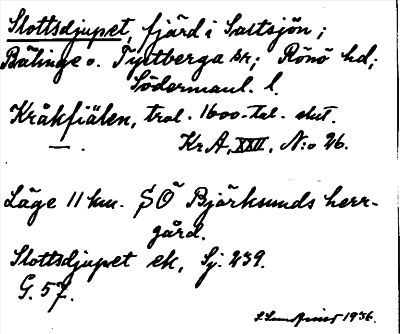 Slottsdjupet, fjärd i Saltsjön;
Bälinge o. Tystberga sn; Rönö hd;
Södermanl. l.
Kråkfiälen, trol. 1600-tal. slut.
— . Kr A, XXII, N:o 26.
Läge 11 km. SÖ Björksunds herr-
gård.
Slottsdjupet ek, Sj. 239.
G. 57.
1936.